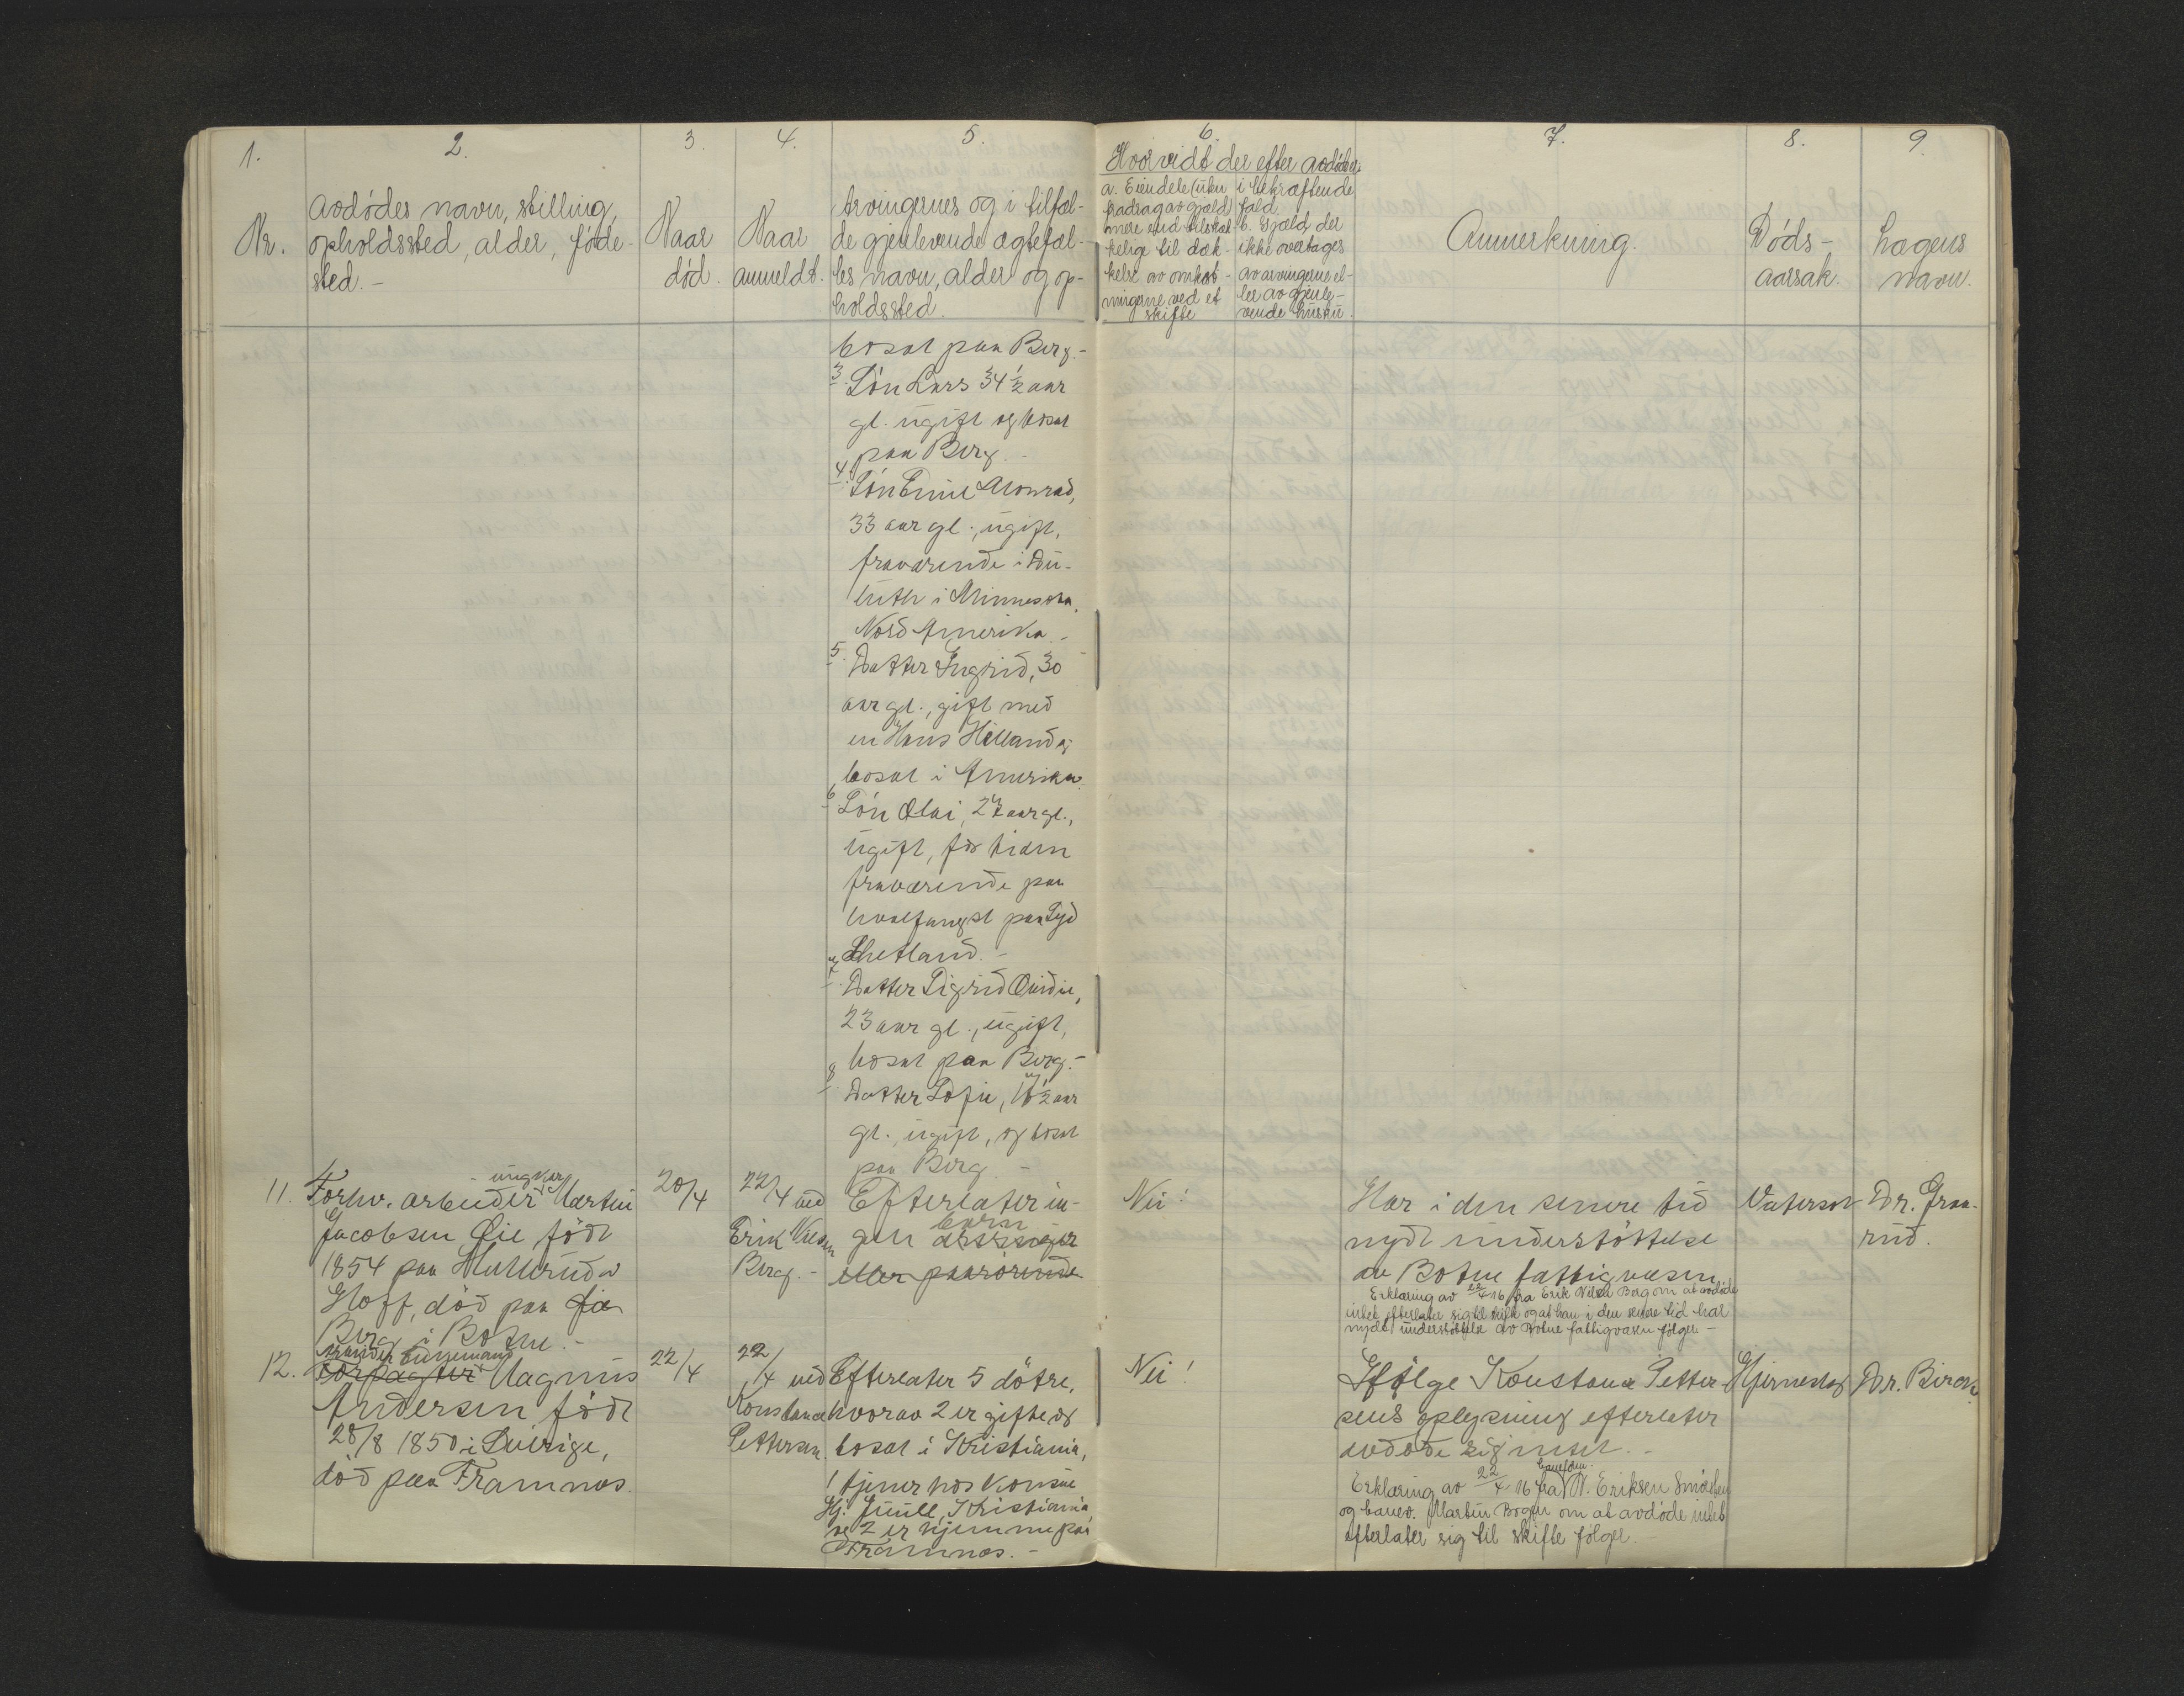 1.
2.
3.
4.
5.
6.
7.
8.
9.
Nr.
Avdödes navn, stilling,
opholdssted, alder, föde-
sted.-
Naar
död.
Naar
anmeldt.
Arvingernes og i tilfæl-
de gjenlevende ægtefæl-
les navn, alder og op-
holdssted.
Hvorvidt der efter avdöde er
a. Eiendele (uten
fradrag av gjæld)
mere end tilstræk-
kelige til dæk-
kelse av omkost-
ningene ved et
skifte
i bekræftende
fald
b. Gjæld, der
ikke overtages
av arvingerne el-
ler av gjenle-
vende hustru.
Anmerkning.
Döds-
aarsak.
Lægens
navn.
bosat paa Berg.-
3. Sön Lars 34 1/2 aar
gl. ugift og bosat
paa Berg.-
4. Sön Emil Monrad,
33 aar gl., ugift,
fraværende i Du-
luth i Minnesota,
Nord Amerika.-
5. Datter Ingrid, 30
aar gl., gift med
en Hans Helland og
bosat i Amerika.
6. Sön Olai, 27 aar gl.,
ugift, for tiden
fraværende paa
hvalfangst paa Syd
Shetland.-
7. Datter Sigrid Ovidie,
23 aar gl., ugift,
bosat paa Berg.-
8. Datter Sofie, 1 1/2 aar
gl., ugift, og bosat
paa Berg.-
11.
ungkar
Forhv. arbeider Martin
Jacobsen Öie födt
1854 paa
Hoff, död paa
Berg i Botne.-
20/4
22/4 ved
Erik Nilsen
Berg.-
Efterlater in-
barn
gen arvinger
eller paarörende
Nei!
Har i den senere tid
nydt understöttelse
av Botne fattigvæsen.
Erklæring av 22/4 16 fra Erik Nilsen Berg om at avdöde
intet efterlater sig til skifte og at han i den senere tid har
nydt understöttelse av Botne fattigvæsen fölger.-
Vatersot
Dr. Graa-
rud.
12.
arbeider enkemand
Forpagter Magnus
Andersen födt
28/8 1850 i Sverige,
död paa Framnæs.
22/4
22/4 ved
Konstance
Pettersen.
Efterlater 5 dötre,
hvorav 2 er gifte og
bosat i Kristiania,
1 tjener hos Konsul
Hj. Juell, Kristiania
og 2 er hjemme paa
Framnæs.-
Nei!
Ifölge Konstance Petter-
sens oplysning efterlater
avdöde sig intet.-
Erklæring av 22/4 16 fra N. Eriksen
og banev. Martin Bogen om at avdöde intet
efterlater sig til skifte fölger.
Hjerneslag
Dr. Birch.